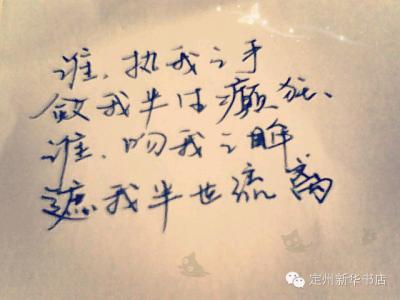 谁，执我之手
敛我半世癫狂、
谁，吻我之眸
遮我半世流离
定州新华书店